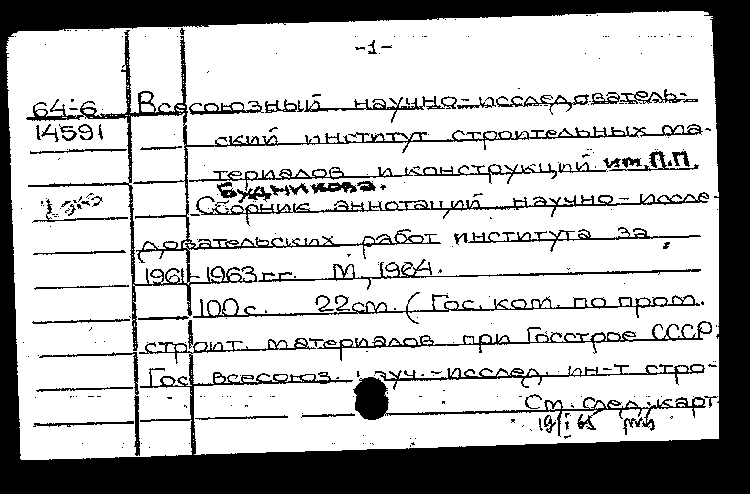 -1-
64-6 Всесоюзный научно-исследователь-
14591 ский институт строительных ма-
териалов и конструкций им. П.П.
Будникова.
2 экз Сборник аннотаций научно-иссле-
довательских работ института за
1961-1963 гг. М., 1964.
100 с. 22 см. (Гос. ком. по пром.
строит. материалов при Госстрое СССР.
Гос. всесоюз. науч.-исслед. ин-т стро-
См. след. карт
19/I 65